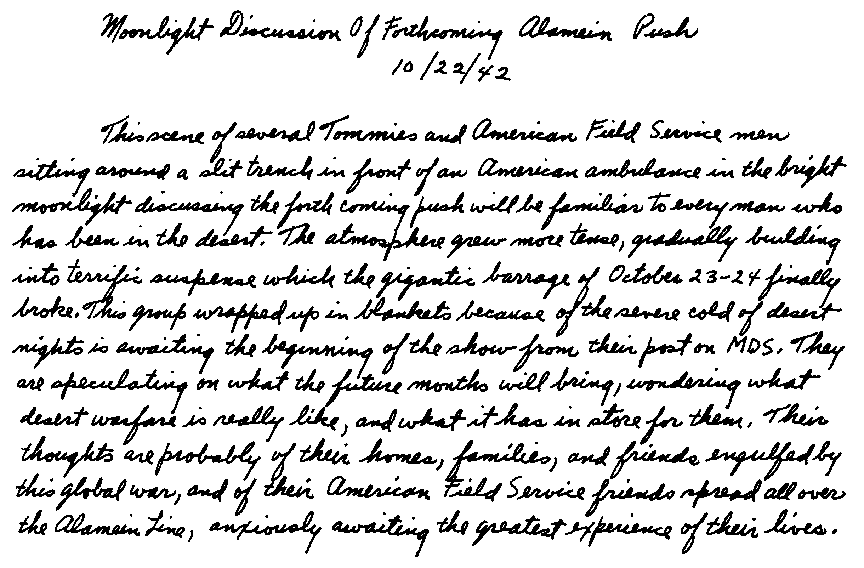 Moonlight Discussion Of Forthcoming Alamein Push
10/22/42
This scene of several Tommies and American Field Service men
sitting around a slit trench in front of an American ambulance in the bright
moonlight discussing the forth coming push will be familiar to every man who
has been in the desert. The atmosphere grew more tense, gradually building
into terrific suspense which the gigantic barrage of October 23-24 finally
broke. This group wrapped up in blankets because of the severe cold of desert
nights is awaiting the beginning of the show from their post on MDS. They
are speculating on what the future months will bring, wondering what
desert warfare is really like, and what it has in store for them. Their
thoughts are probably of their homes, families, and friends engulfed by
this global war, and of their American Field Service friends spread all over
the Alamein Line, anxiously awaiting the greatest experience of their lives.